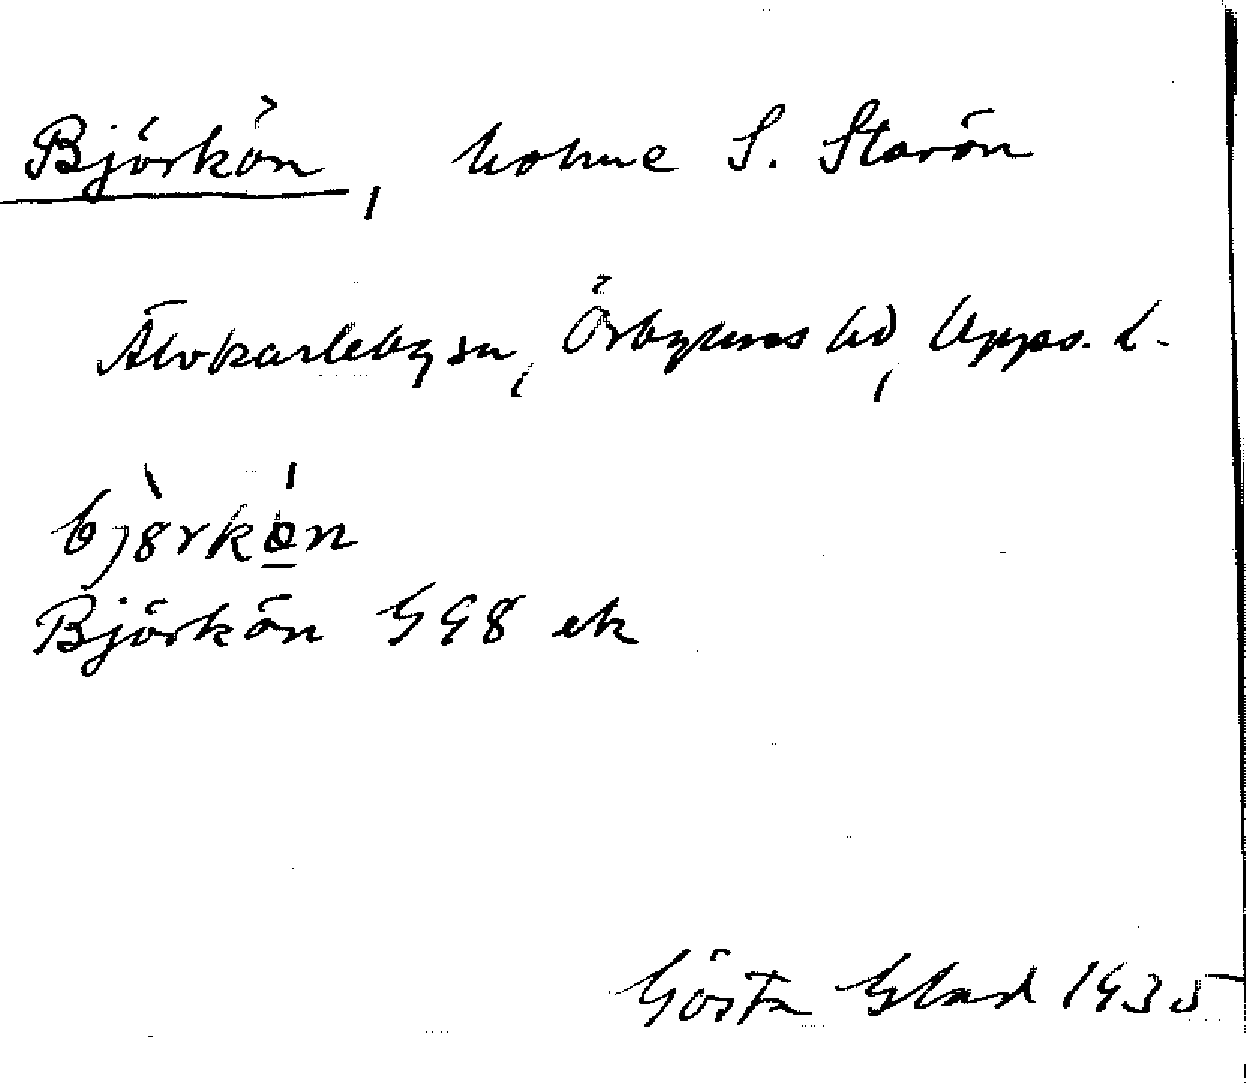 Björkön, holme S. Starön
Älvkarleby sn, Örbyhus hd, Upps. l.
bjò̀rkǿ̲n
Björkön G98 ek
Gösta Glad 1935